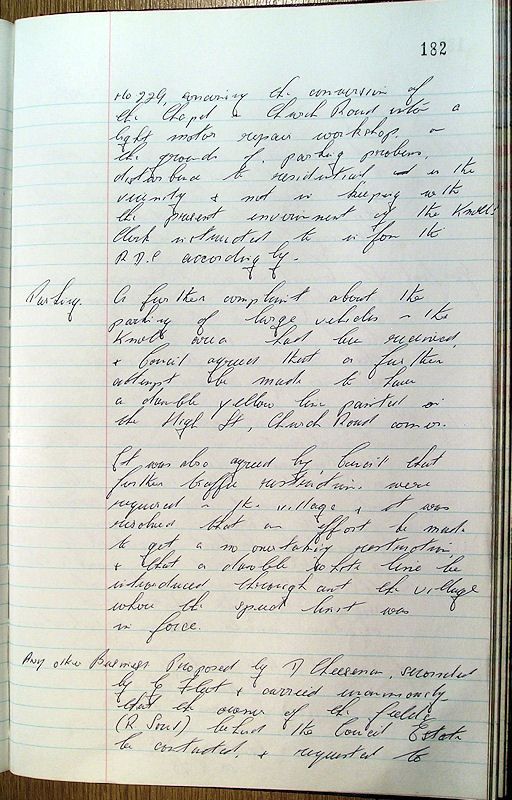 182
No 229, concerning the conversion of
the Chapel in Church Road into a
light motor repair workshop, on
the grounds of, parking problems,
disturbance to residential in the
vicinity & not in keeping with
the present enviroment of the Knoll.
Clerk instructed to inform the
R.D.C accordingly.
Parking. A further complaint about the
parking of large vehicles in the
Knoll area had been received,
& Council agreed that a further
attempt be made to have
a double yellow line painted on
the High St, Church Road corner.
It was also agreed by Council that
further traffic restrictions were
required in the village, & it was
resolved that an effort be made
to get a no overtaking restriction,
& that a double white line be
introduced throughout the village
where the speed limit was
in force.
Any other Business Proposed by D Cheeseman, seconded
by G Flet & carried unanimously
that the owner of the fields
(R Soul) behind the Council Estate
be contacted, & requested to